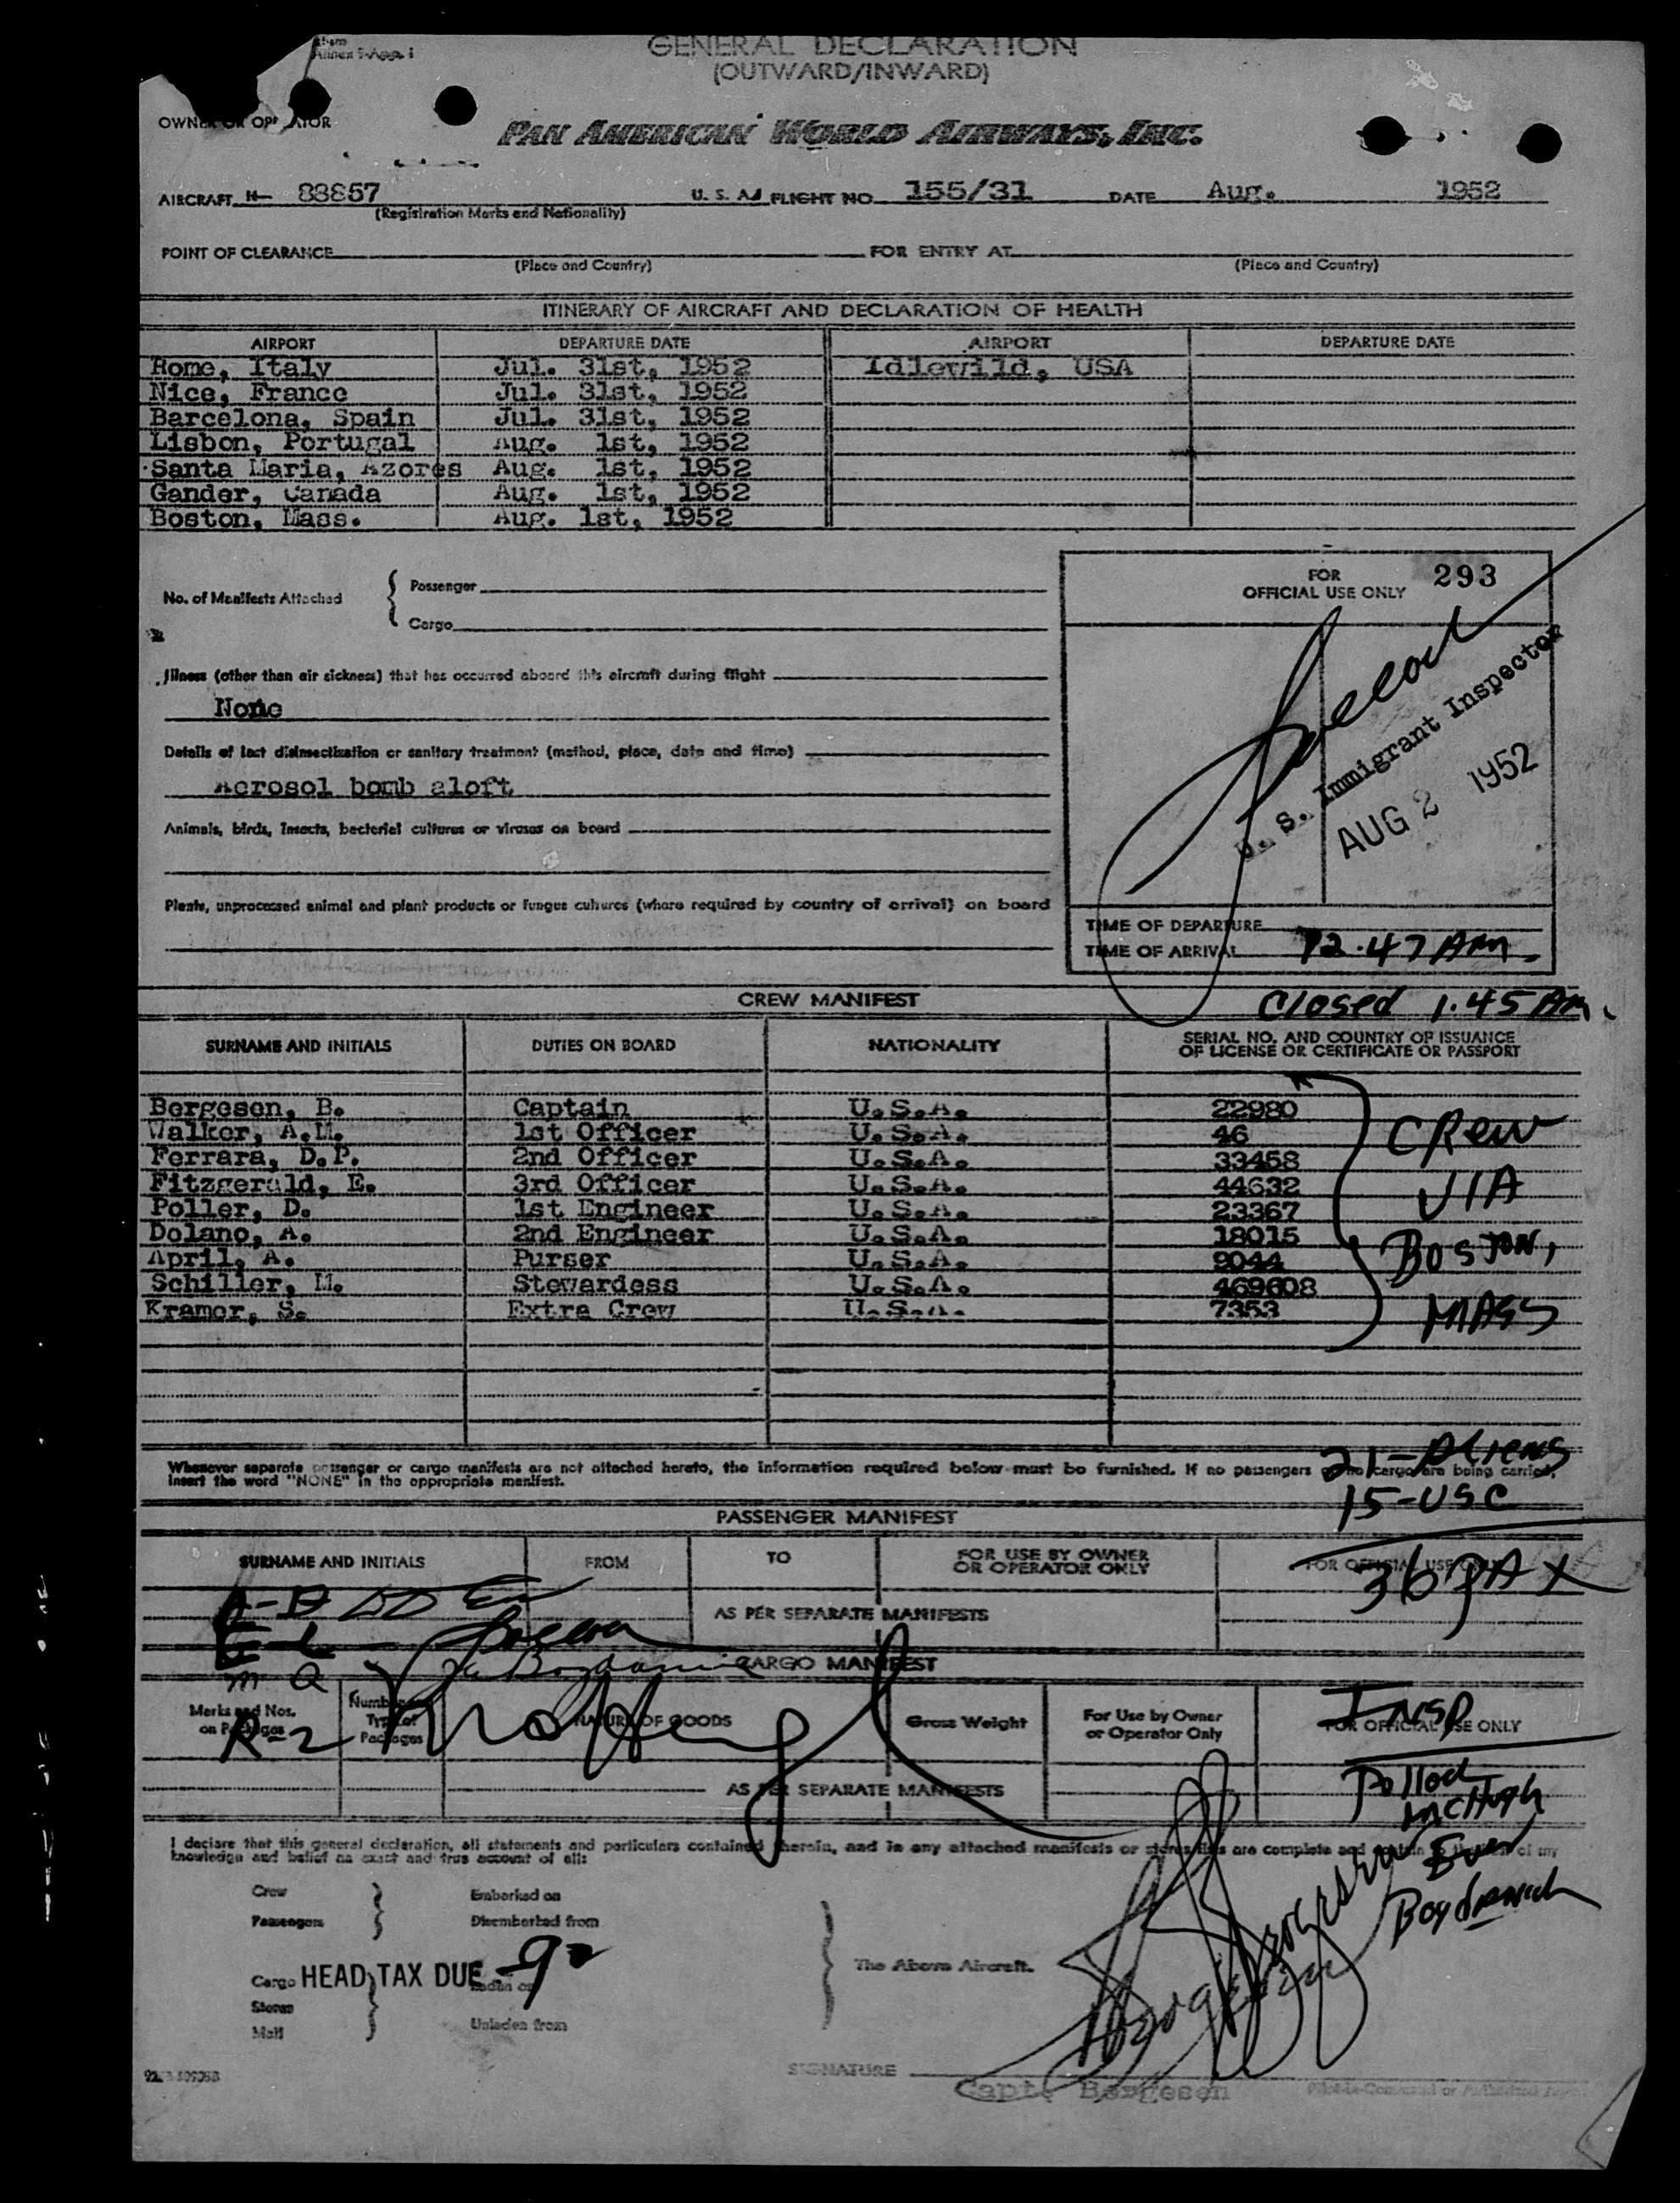 GENERAL DECLARATION
(OUTWARD/INWARD)
OWNER OR OPERATOR
PAN AMERICAN WORLD AIRWAYS, INC.
AIRCRAFT N- 88857 U. S. A. FLIGHT NO. 155/31 DATE Aug. 1952
(Registration Marks and Nationality)
POINT OF CLEARANCE FOR ENTRY AT
(Place and Country) (Place and Country)
ITINERARY OF AIRCRAFT AND DECLARATION OF HEALTH
AIRPORT DEPARTURE DATE AIRPORT DEPARTURE DATE
Rome, Italy Jul. 31st, 1952 Idlewild, USA
Nice, France Jul. 31st, 1952
Barcelona, Spain Jul. 31st, 1952
Lisbon, Portugal Aug. 1st, 1952
Santa Maria, Azores Aug. 1st, 1952
Gander, Canada Aug. 1st, 1952
Boston, Mass. Aug. 1st, 1952
FOR 293
OFFICIAL USE ONLY
No. of Manifests Attached
Passenger
Cargo
Illness (other than air sickness) that has occurred aboard this aircraft during flight
None
Details of last disinsectization or sanitary treatment (method, place, date and time)
Aerosol bomb aloft
Animals, birds, insects, bacterial cultures or viruses on board
Plants, unprocessed animal and plant products or fungus cultures (where required by country of arrival) on board
U. S. Immigrant Inspector
AUG 2 1952
TIME OF DEPARTURE
TIME OF ARRIVAL 12.47 AM.
CREW MANIFEST Closed 1.45 Am.
SURNAME AND INITIALS DUTIES ON BOARD NATIONALITY SERIAL NO. AND COUNTRY OF ISSUANCE
OF LICENSE OR CERTIFICATE OR PASSPORT
Bergesen, B. Captain U.S.A. 22980
Walker, A.M. 1st Officer U.S.A. 46
Ferrara, D.P. 2nd Officer U.S.A. 33458
Fitzgerald, E. 3rd Officer U.S.A. 44632
Poller, D. 1st Engineer U.S.A. 23367
Dolano, A. 2nd Engineer U.S.A. 18015
April, A. Purser U.S.A. 9044
Schiller, M. Stewardess U.S.A. 469608
Kramer, S. Extra Crew U.S.A. 7353
CREW
VIA
BOSTON,
MASS
21-Aliens
Whenever separate passenger or cargo manifests are not attached hereto, the information required below must be furnished. If no passengers or no cargo are being carried,
insert the word "NONE" in the appropriate manifest.
15-USC
PASSENGER MANIFEST
SURNAME AND INITIALS FROM TO FOR USE BY OWNER
OR OPERATOR ONLY FOR OFFICIAL USE ONLY
36 PAX
AS PER SEPARATE MANIFESTS
CARGO MANIFEST
M Q
R-Z
Marks and Nos.
on Packages
Number and
Type of
Packages
NATURE OF GOODS Gross Weight For Use by Owner
or Operator Only FOR OFFICIAL USE ONLY
INSP
AS PER SEPARATE MANIFESTS
Pollock
McHugh
I declare that this general declaration, all statements and particulars contained therein, and in any attached manifests or stores lists are complete and contain to the best of my
knowledge and belief an exact and true account of all:
Crew Embarked on
Passengers Disembarked from
The Above Aircraft.
Cargo Laden on
HEAD TAX DUE
Stores
Mail Unladen from
SIGNATURE
Capt. Bergesen
Pilot-in-Command or Authorized Agent